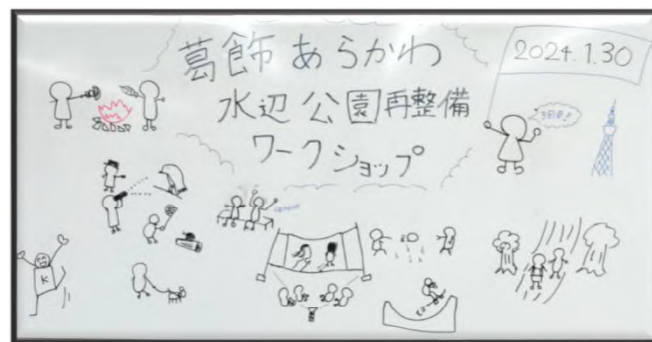 葛飾あらかわ
水辺公園再整備
ワークショップ
2024.1.30
3回目!
K